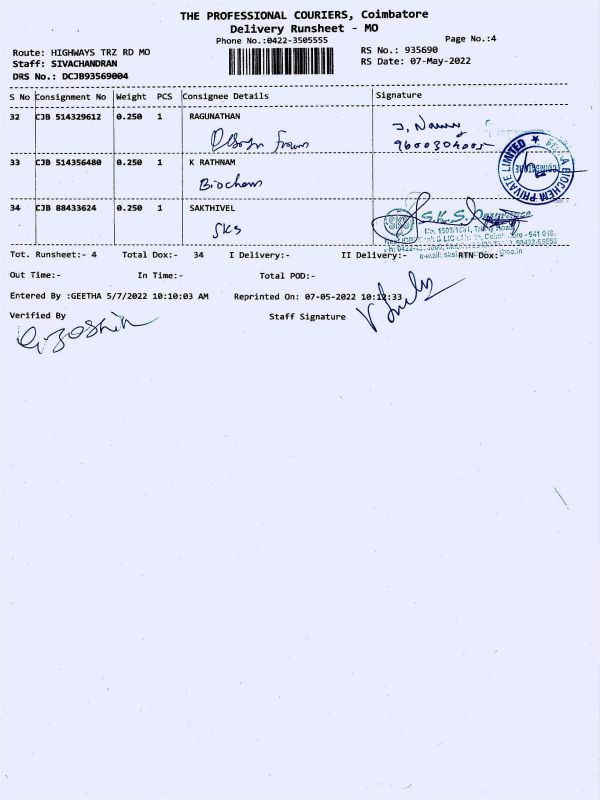 THE PROFESSIONAL COURIERS, Coimbatore
Delivery Runsheet - MO
Phone No.:0422-3505555 Page No.:4
Route: HIGHWAYS TRZ RD MO RS No.: 935690
Staff: SIVACHANDRAN RS Date: 07-May-2022
DRS No.: DCJB93569004
S No Consignment No Weight PCS Consignee Details Signature
32 CJB 514329612 0.250 1 RAGUNATHAN
9600304005
33 CJB 514356480 0.250 1 K RATHNAM
Biochem
BIOCHEM PRIVATE LIMITED
34 CJB 88433624 0.250 1 SAKTHIVEL
SKS
S.K.S.
Tot. Runsheet:- 4 Total Dox:- 34 I Delivery:- II Delivery:- RTN Dox:-
Out Time:- In Time:- Total POD:-
Entered By :GEETHA 5/7/2022 10:10:03 AM Reprinted On: 07-05-2022 10:12:33
Verified By Staff Signature